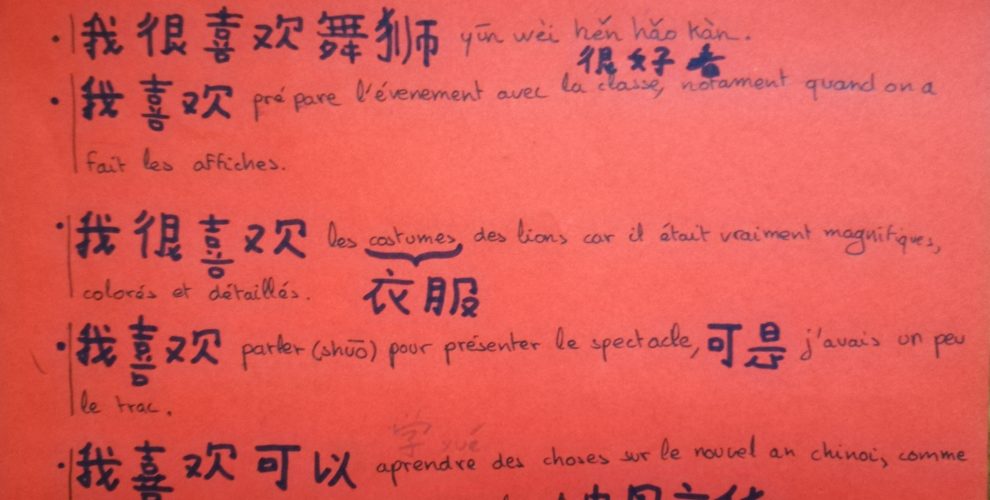 • 我很喜欢舞狮 yīn wèi hěn hǎo kàn.
很好看
• 我喜欢 prépare l'évenement avec la classe, notament quand on a
fait les affiches.
• 我很喜欢 les costumes, des lions car il était vraiment magnifiques,
colorés et détaillés. 衣服
• 我喜欢 parler (shuō) pour présenter le spectacle, 可是 j'avais un peu
le trac.
学 xué
• 我喜欢可以 aprendre des choses sur le nouvel an chinois, comme